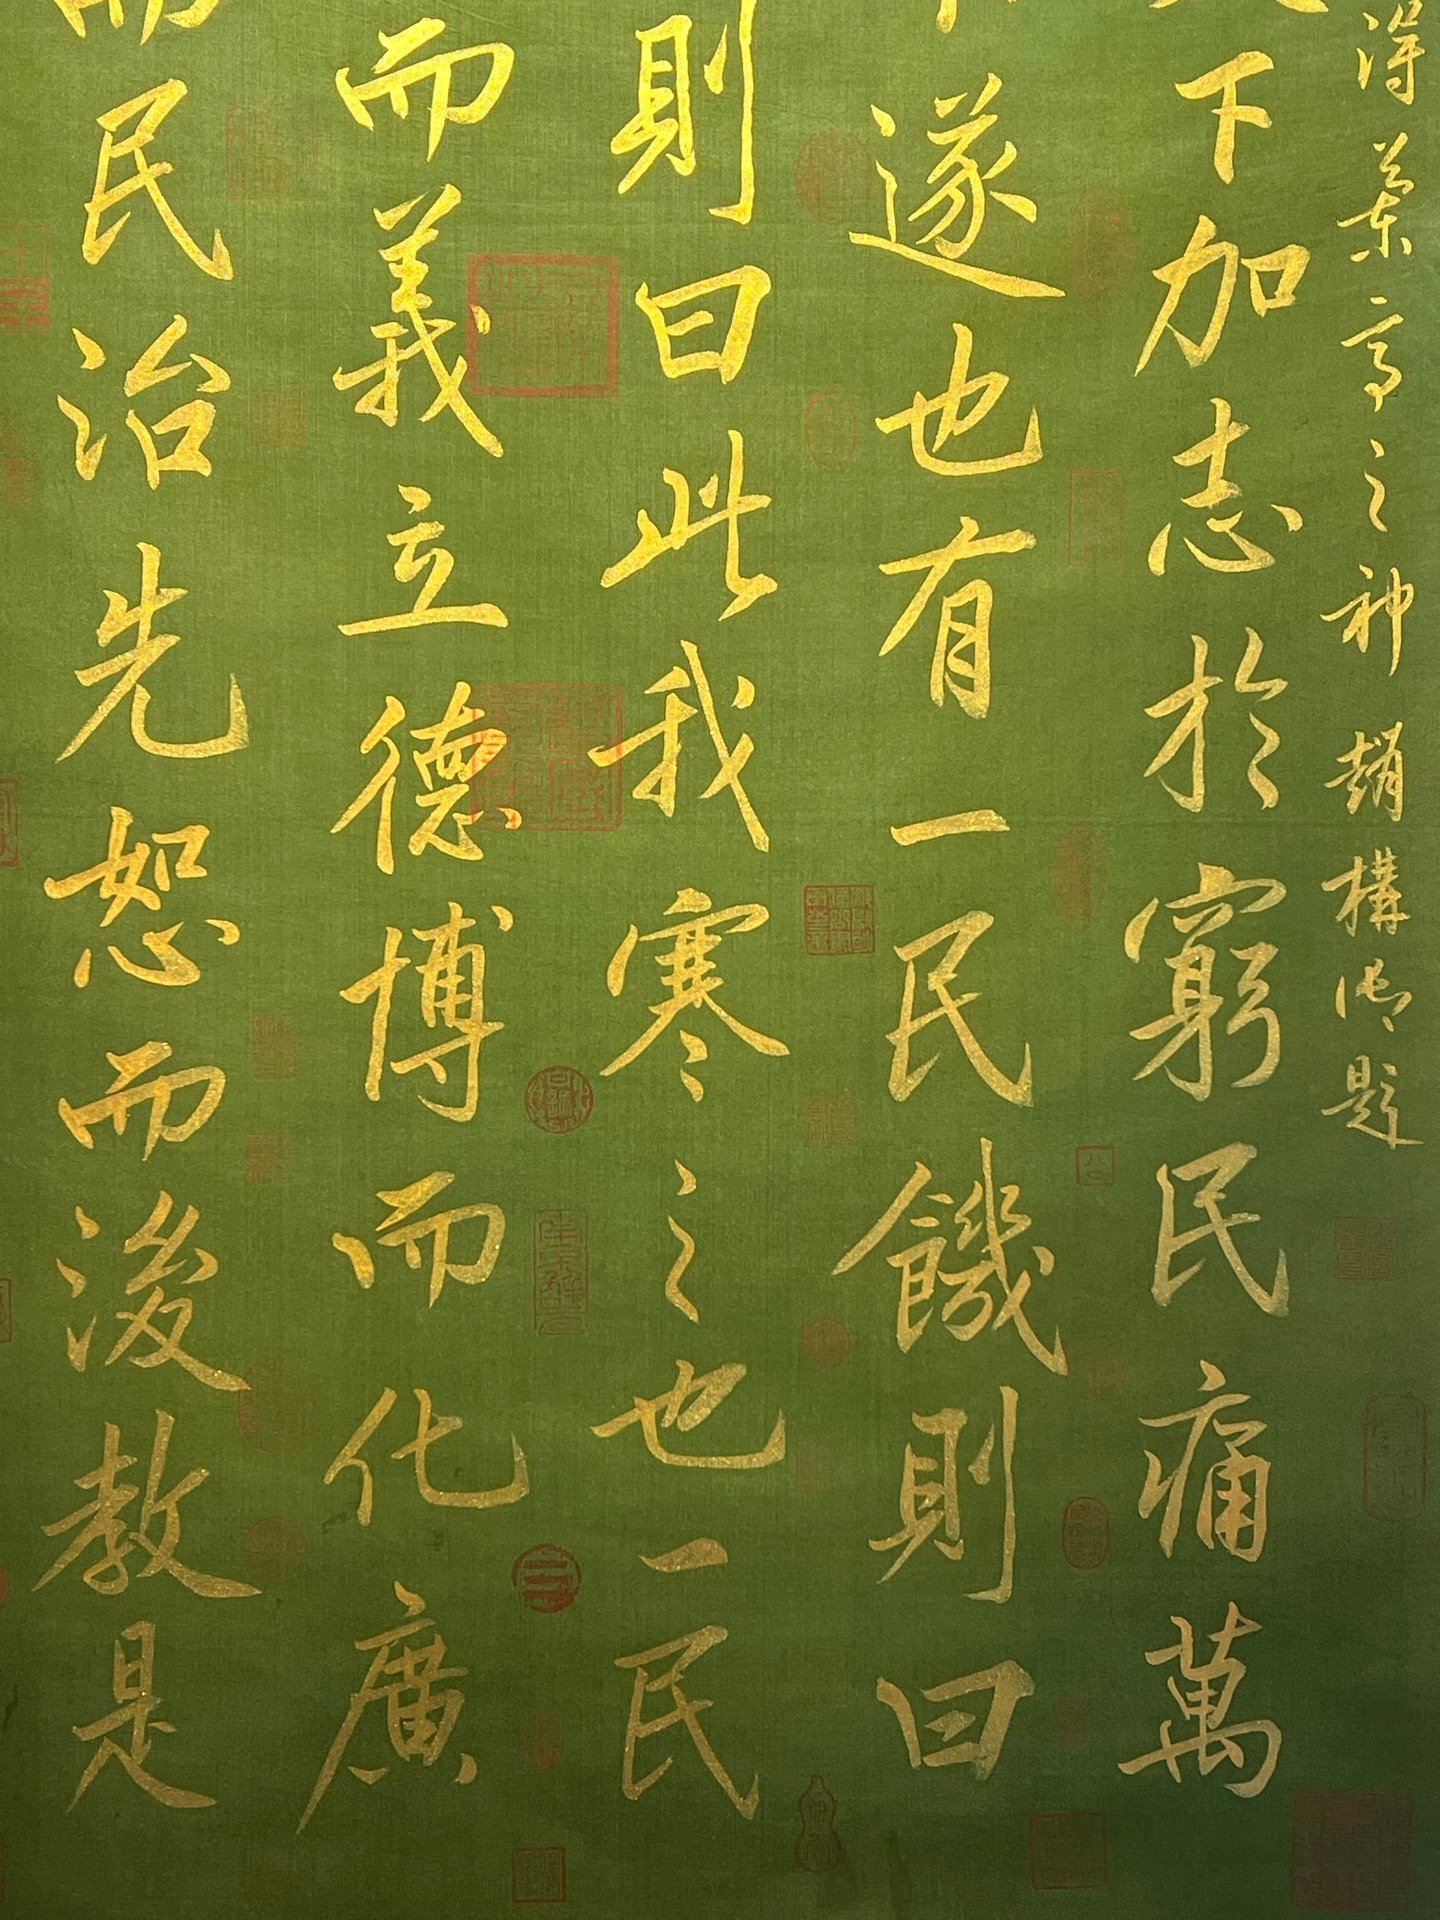 得蘭亭之神趙構御題
下加志於窮民痛萬
遂也有一民饑則曰
則曰此我寒之也一民
而義立德博而化廣
民治先恕而後教是